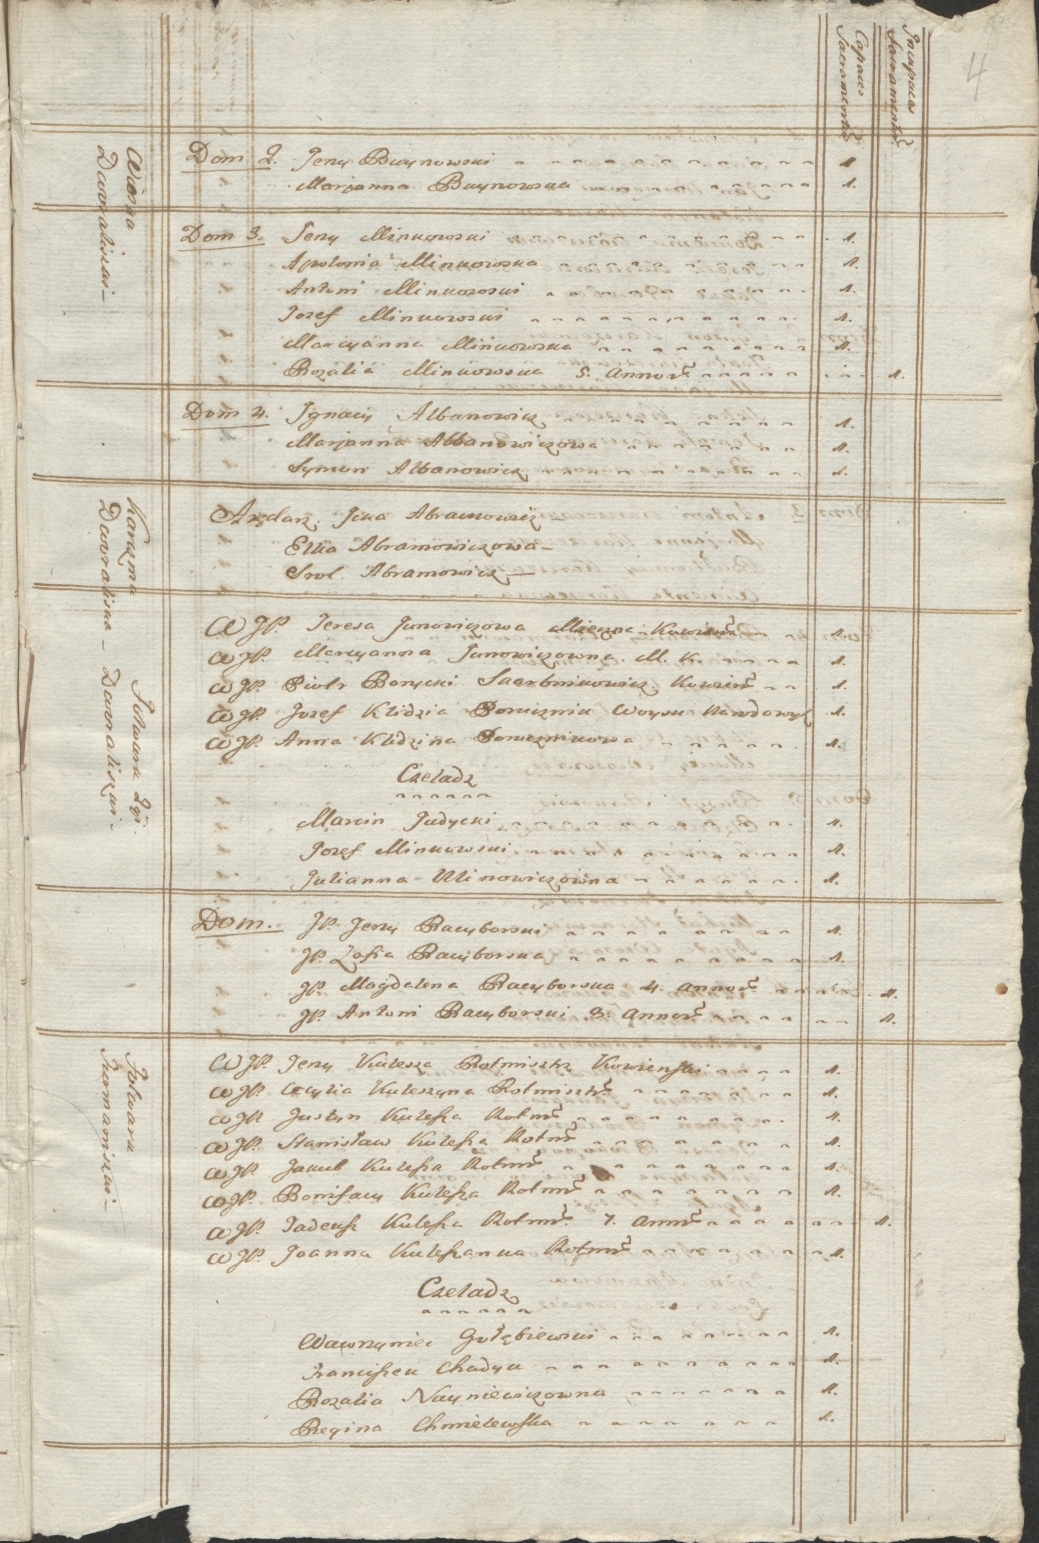 4
Capaces Sacramentor̃
Incapaces Sacramentor̃
Wioska Dawaliszki
Dom 2. Jerzy Buynowski 1.
Marjanna Buynowska 1.
Dom 3. Jerzy Minkowski 1.
Apolonia Minkowska 1.
Antoni Minkowski 1.
Jozef Minkowski 1.
Marcyanna Minkowska 1.
Rozalia Minkowska 5. annor̃ 1.
Dom 4. Ignacy Albanowicz 1.
Marjanna Albanowiczowa 1.
Symon Albanowicz 1.
Karczma
Arędarz Abramowicz
Elka Abramowiczowa
Srol Abramowicz
Folwark
W JP. Teresa Junowiczowa 1.
W JP. Marcyanna Junowiczowna M. K. 1.
W JP. Piotr Borycki Skarbnikowicz Kowień 1.
W JP. Jozef Klidzia Porucznik Woysk Narodowych 1.
W JP. Anna Klidzina Porucznikowa 1.
Czeladz
Marcin Judycki 1.
Jozef Minkowski 1.
Julianna Ulinowiczowna 1.
Dom. JP. Jerzy Racyborski 1.
JP. Zofia Racyborska 1.
JP. Magdalena Racyborska 4. annor̃ 1.
JP. Antoni Racyborski 3. annor̃ 1.
Folwark
W JP. Jerzy Kulesza Rotmistrz Kowienski 1.
W JP. Cecylia Kuleszyna Rotmistrz 1.
W JP. Justyn Kulesza Rotm̃ 1.
W JP. Stanisław Kulesza Rotm̃ 1.
W JP. Jakub Kulesza Rotm̃ 1.
W JP. Bonifacy Kulesza Rotm̃ 1.
W JP. Tadeusz Kulesza Rotm̃ 7. annor̃ 1.
W JP. Joanna Kuleszanka Rotm̃ 1.
Czeladz
Wawrzyniec Gołębiewski 1.
Franciszek Chadyk 1.
Rozalia Nayniewiczowna 1.
Regina Chmielewska 1.